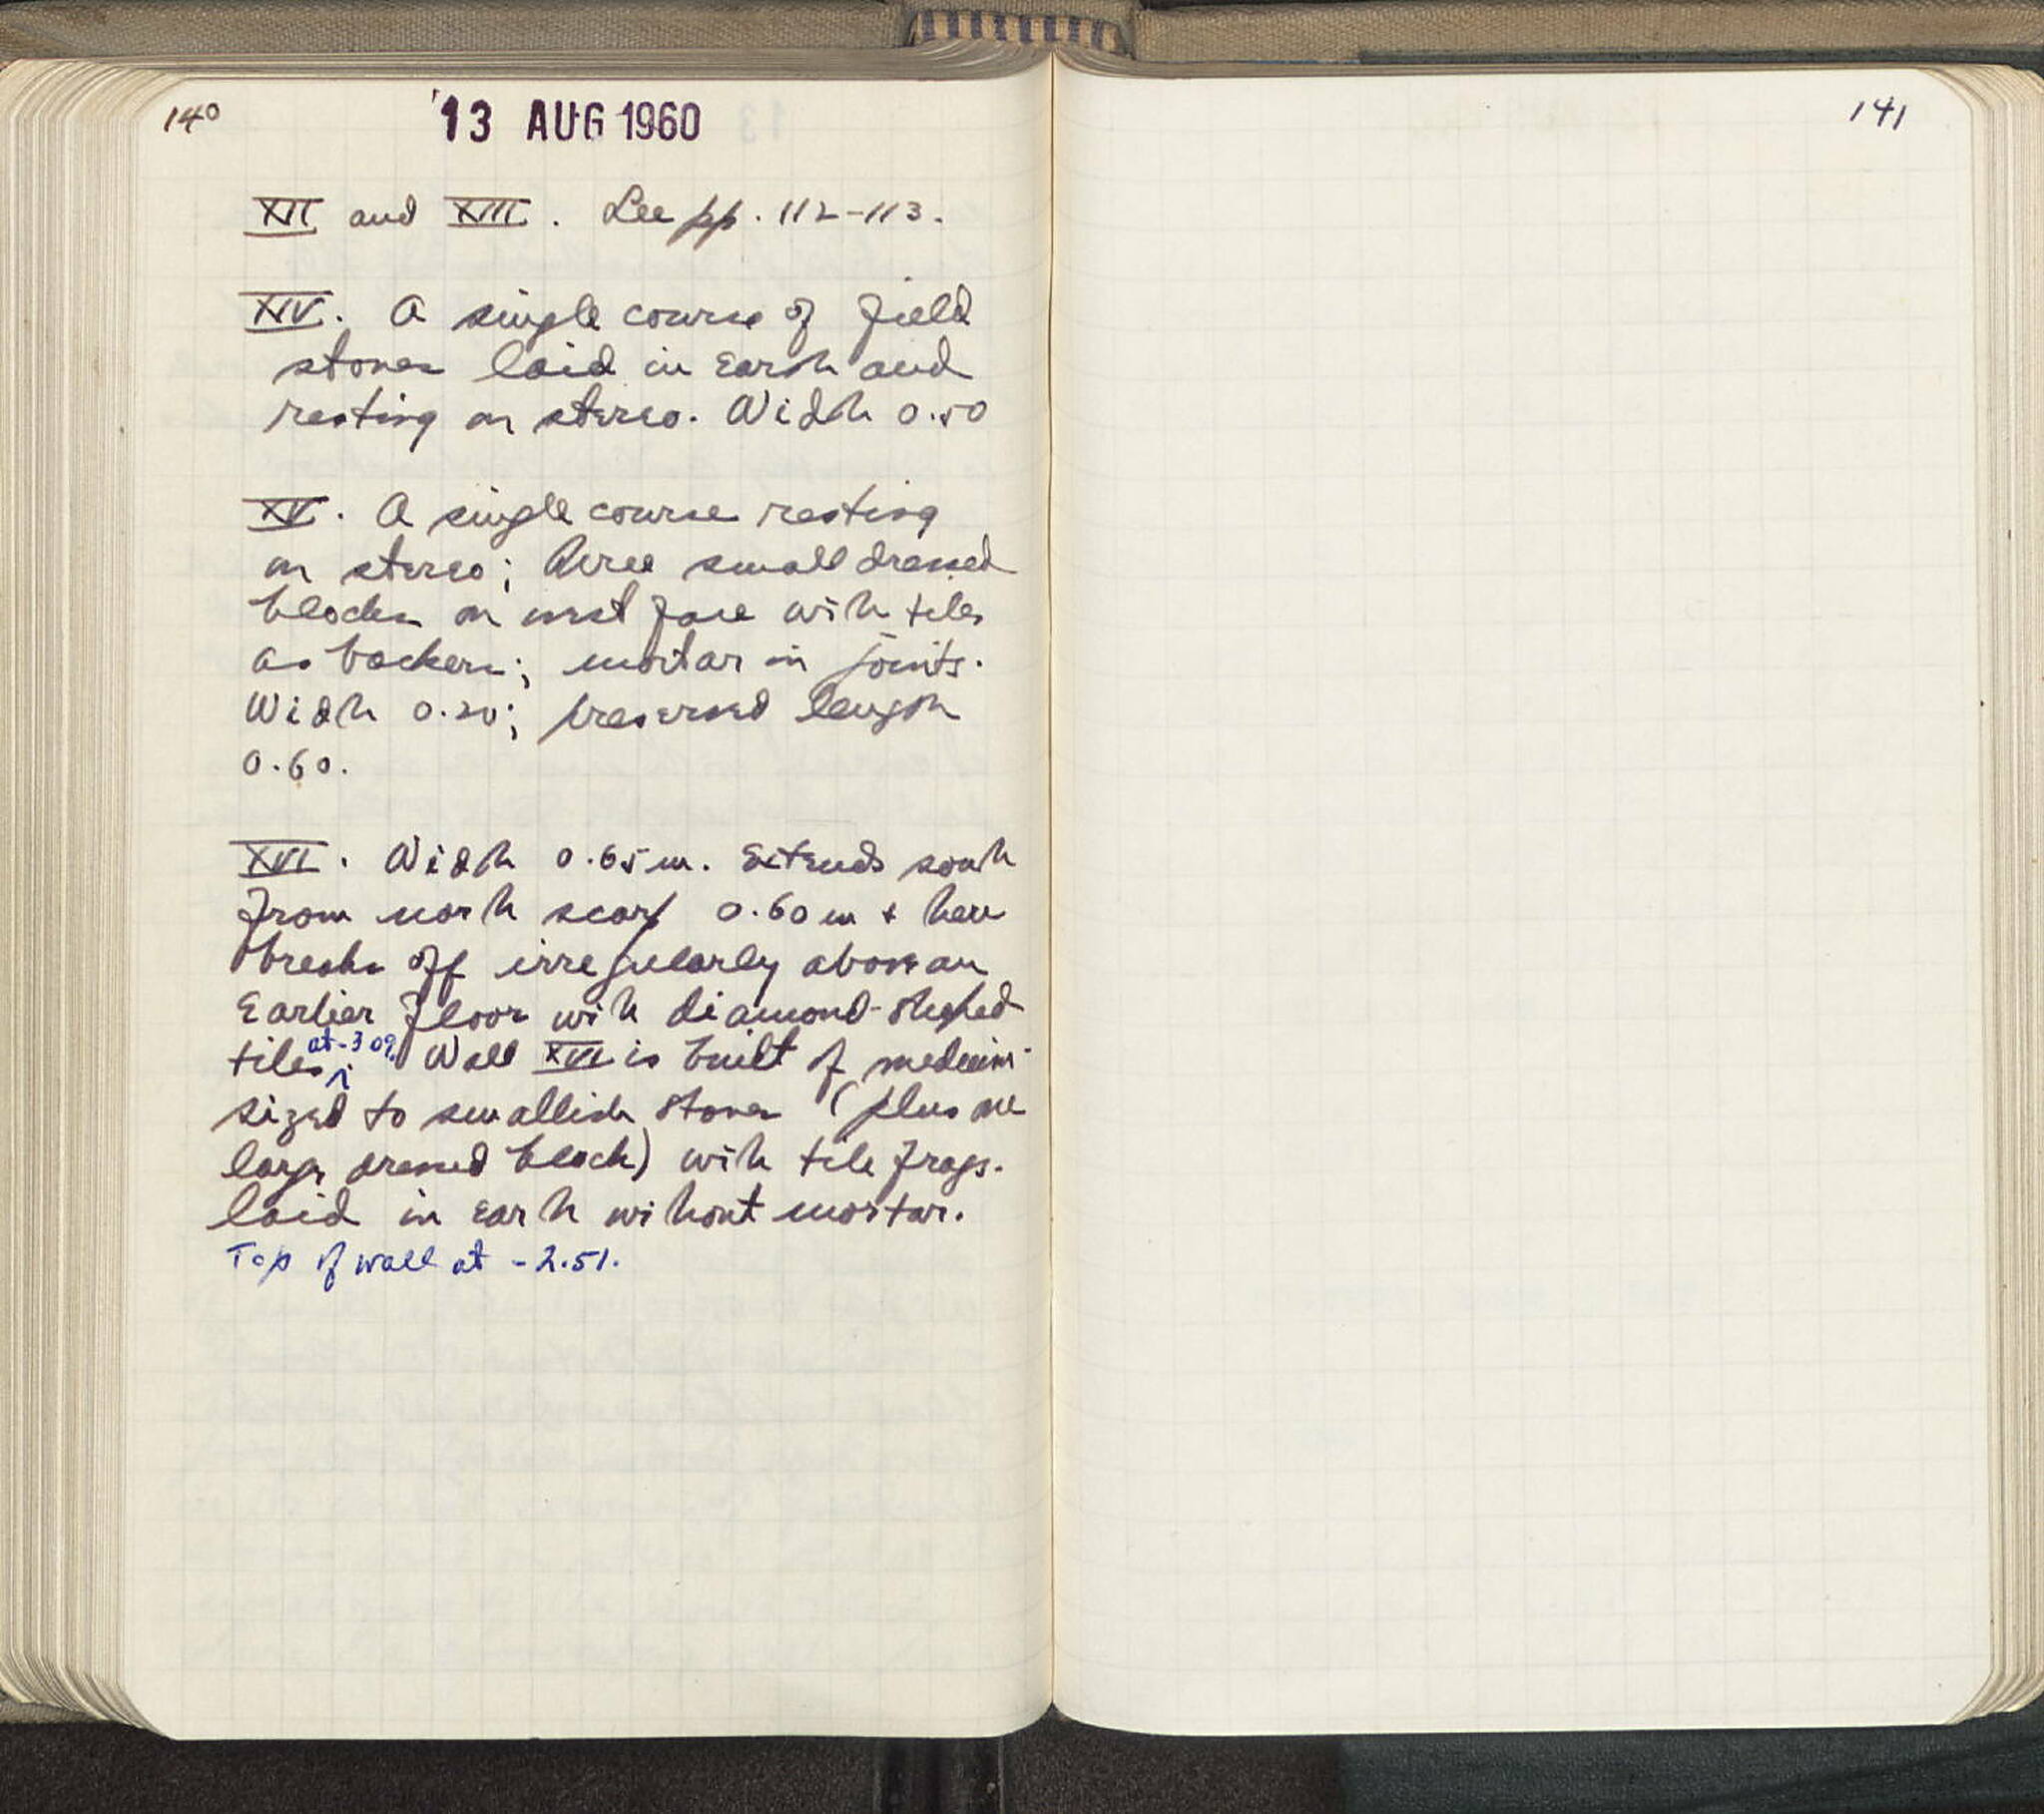 140
13 AUG 1960
XII and XIII. See pp. 112-113.
XIV. A single course of field
stones laid in Earth and
resting on stereo. Width 0.50
XV. A single course resting
on stereo; three small dressed
blocks on west face with tiles
as backers; mortar in joints.
Width 0.20; preserved length
0.60.
XVI. Width 0.65 m. Extends south
from north scarp 0.60 m + here
breaks off irregularly above an
Earlier floor with diamond-shaped
tiles at -3.09. Wall XVI is built of medium-
sized to smallish stones (plus one
large dressed block) with tile frags.
laid in earth without mortar.
Top of wall at -2.51.
141